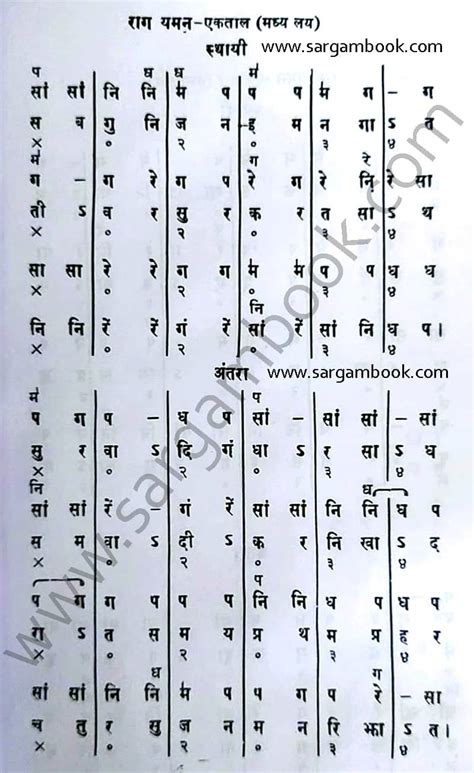 राग यमन-एकताल (मध्य लय)
स्थायी www.sargambook.com
प ध ध म॑
सां सां नि नि म॑ प प प म॑ ग - ग
स ब गु नि ज न इ म न गा ऽ त
× ० २ ० ३ ४
म॑ ग रे
ग - ग रे ग प रे ग रे नि़ रे सा
ती ऽ व र सु र क र त सा ऽ थ
× ० २ ० ३ ४
सा सा रे रे ग ग म॑ म॑ प प ध ध
× ० २ ० ३ ४
नि
नि नि रें रें गं रें सां रें सां नि ध प।
× ० २ ० ३ ४
अंतरा www.sargambook.com
म॑ प
प ग प - ध प सां - सां सां - सां
सु र वा ऽ दि गं धा ऽ र सा ऽ ध
× ० २ ० ३ ४
नि ध
सां सां रें - गं रें सां सां नि नि ध प
स म वा ऽ दी ऽ क र नि खा ऽ द
× ० २ ० ३ ४
प
प ग ग प प प नि नि ध प ध प
रा ऽ त स म य प्र थ म प्र ह र
× ० २ ० ३ ४
ध ग
सां सां नि नि म॑ प प ग प रे - सा
च तु र सु ज न म न रि झा ऽ त।
× ० २ ० ३ ४
www.sargambook.com